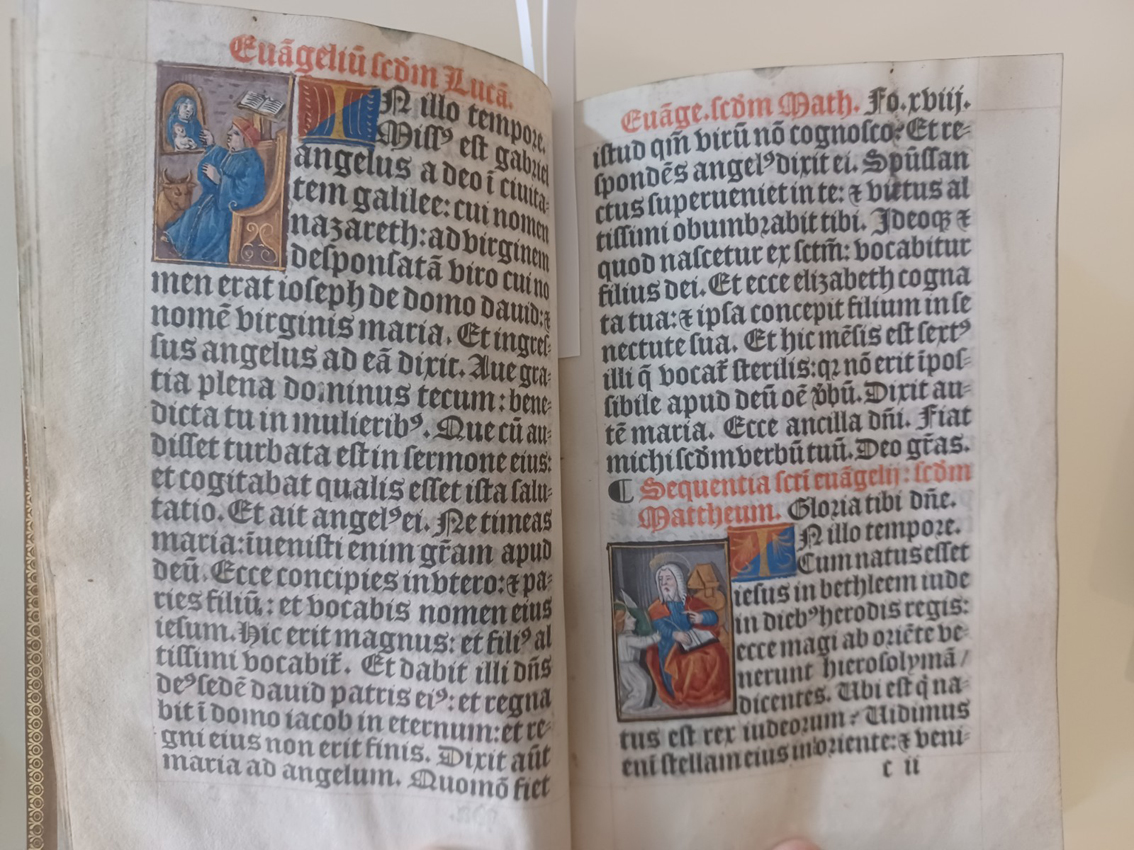 Euãgeliũ scđm Lucã.
IN illo tempore.
Missꝰ est gabriel
angelus a deo ī ciuita⸗
tem galilee: cui nomen
nazareth: ad virginem
desponsatã viro cui no
men erat ioseph de domo dauid: ⁊
nomẽ virginis maria. Et ingres⸗
sus angelus ad eã dixit. Aue gra⸗
tia plena dominus tecum: bene⸗
dicta tu in mulieribꝰ. Que cũ au⸗
disset turbata est in sermone eius:
et cogitabat qualis esset ista salu⸗
tatio. Et ait angelꝰ ei. Ne timeas
maria: īuenisti enim gr̃am apud
deũ. Ecce concipies in vtero: ⁊ pa⸗
ries filiũ: et vocabis nomen eius
iesum. Hic erit magnus: et filiꝰ al
tissimi vocabit̃. Et dabit illi dñs
deꝰ sedẽ dauid patris eiꝰ: et regna
bit ī domo iacob in eternum: et re⸗
gni eius non erit finis. Dixit aũt
maria ad angelum. Quomõ fiet
Euãge. scđm Math. Fo. xviij.
istud qm̃ virũ nõ cognosco? Et re⸗
spondẽs angelꝰ dixit ei. Spũssan
ctus superueniet in te: ⁊ virtus al
tissimi obumbrabit tibi. Ideoqꝫ ⁊
quod nascetur ex sctm̃: vocabitur
filius dei. Et ecce elizabeth cogna
ta tua: ⁊ ipsa concepit filium in se
nectute sua. Et hic mẽsis est sextꝰ
illi q̃ vocat̃ sterilis: qꝛ nõ erit īpos⸗
sibile apud deũ oẽ v̄bũ. Dixit au⸗
tẽ maria. Ecce ancilla dñi. Fiat
michi scđm verbũ tuũ. Deo gr̃as.
¶ Sequentia scti euãgelij: scđm
Mattheum. Gloria tibi dñe.
IN illo tempore.
Cum natus esset
iesus in bethleem iude
in diebꝰ herodis regis:
ecce magi ab oriẽte ve⸗
nerunt hierosolymã /
dicentes. Ubi est q̃ na⸗
tus est rex iudeorum? Uidimus
enī stellam eius in oriente: ⁊ veni⸗
c ii